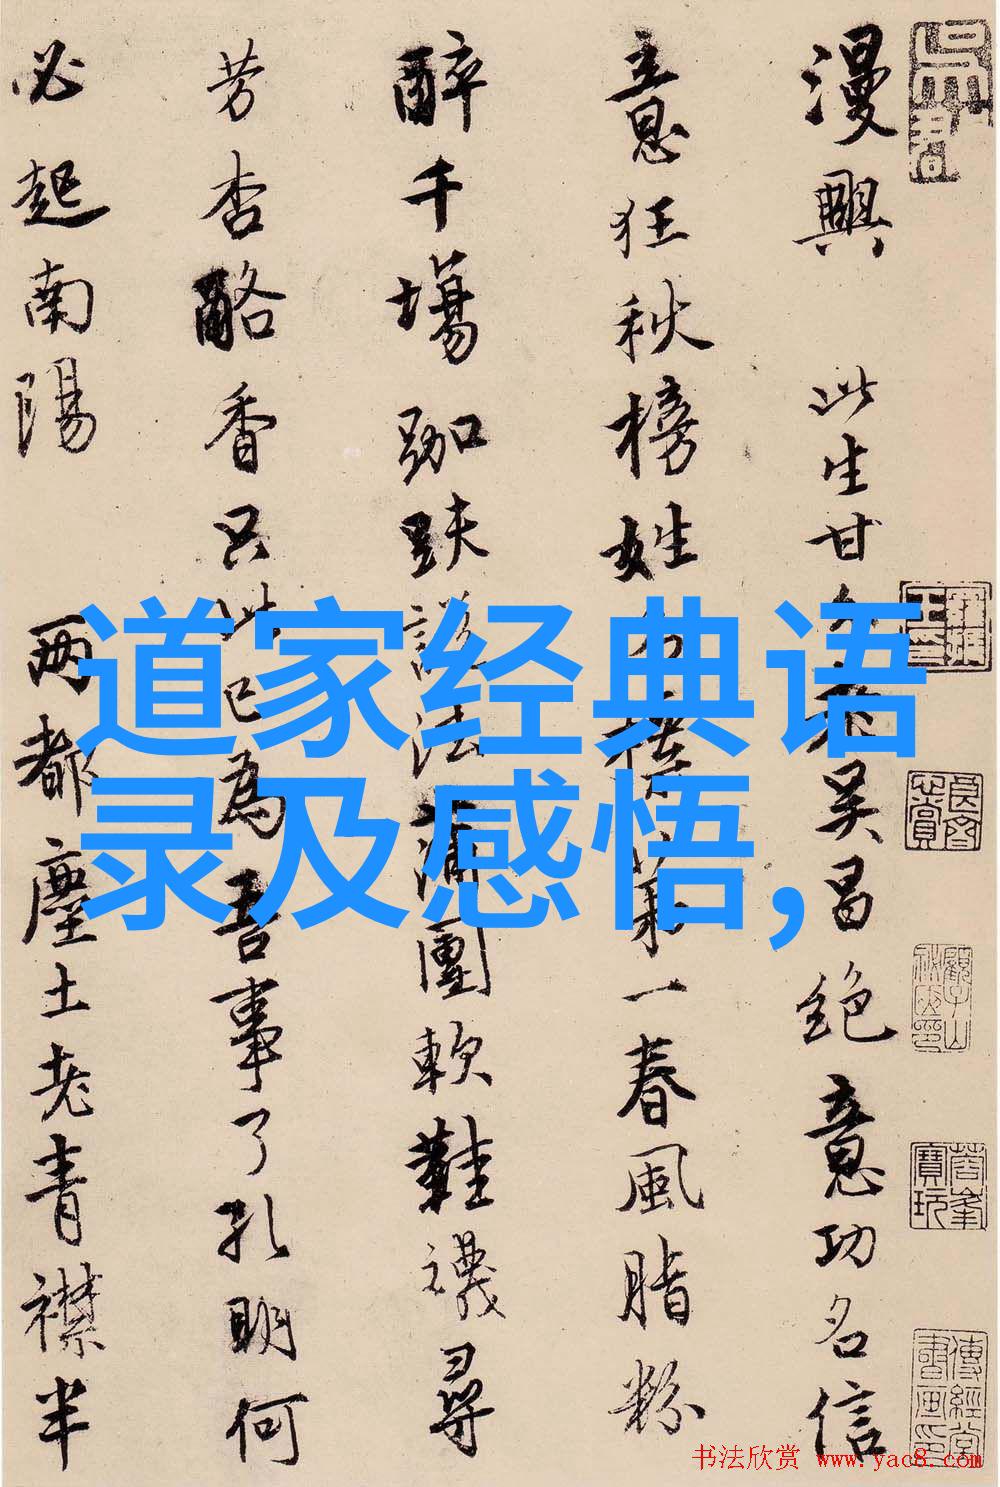 漫興 此生甘 吳昌絕意功名信
意狂秋榜姓名標第一春風脂粉
醉千場跏趺說法蒲團軟鞋襪尋
芳杏酪香只此已為吾事了孔明何
必起南陽 兩都塵土老青襟半
道家经典语
录及感悟,
书法欣赏 www.yac8.com